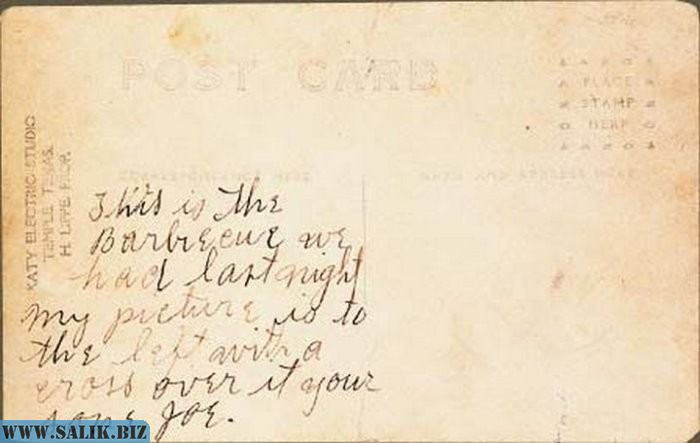 POST CARD
PLACE
STAMP
HERE
KATY ELECTRIC STUDIO
TEMPLE TEXAS.
H. LIPPE PROP.
CORRESPONDENCE HERE
NAME AND ADDRESS HERE
This is the
Barbecue we
had last night
My picture is to
the left with a
cross over it your
sone Joe.
WWW.SALIK.BIZ